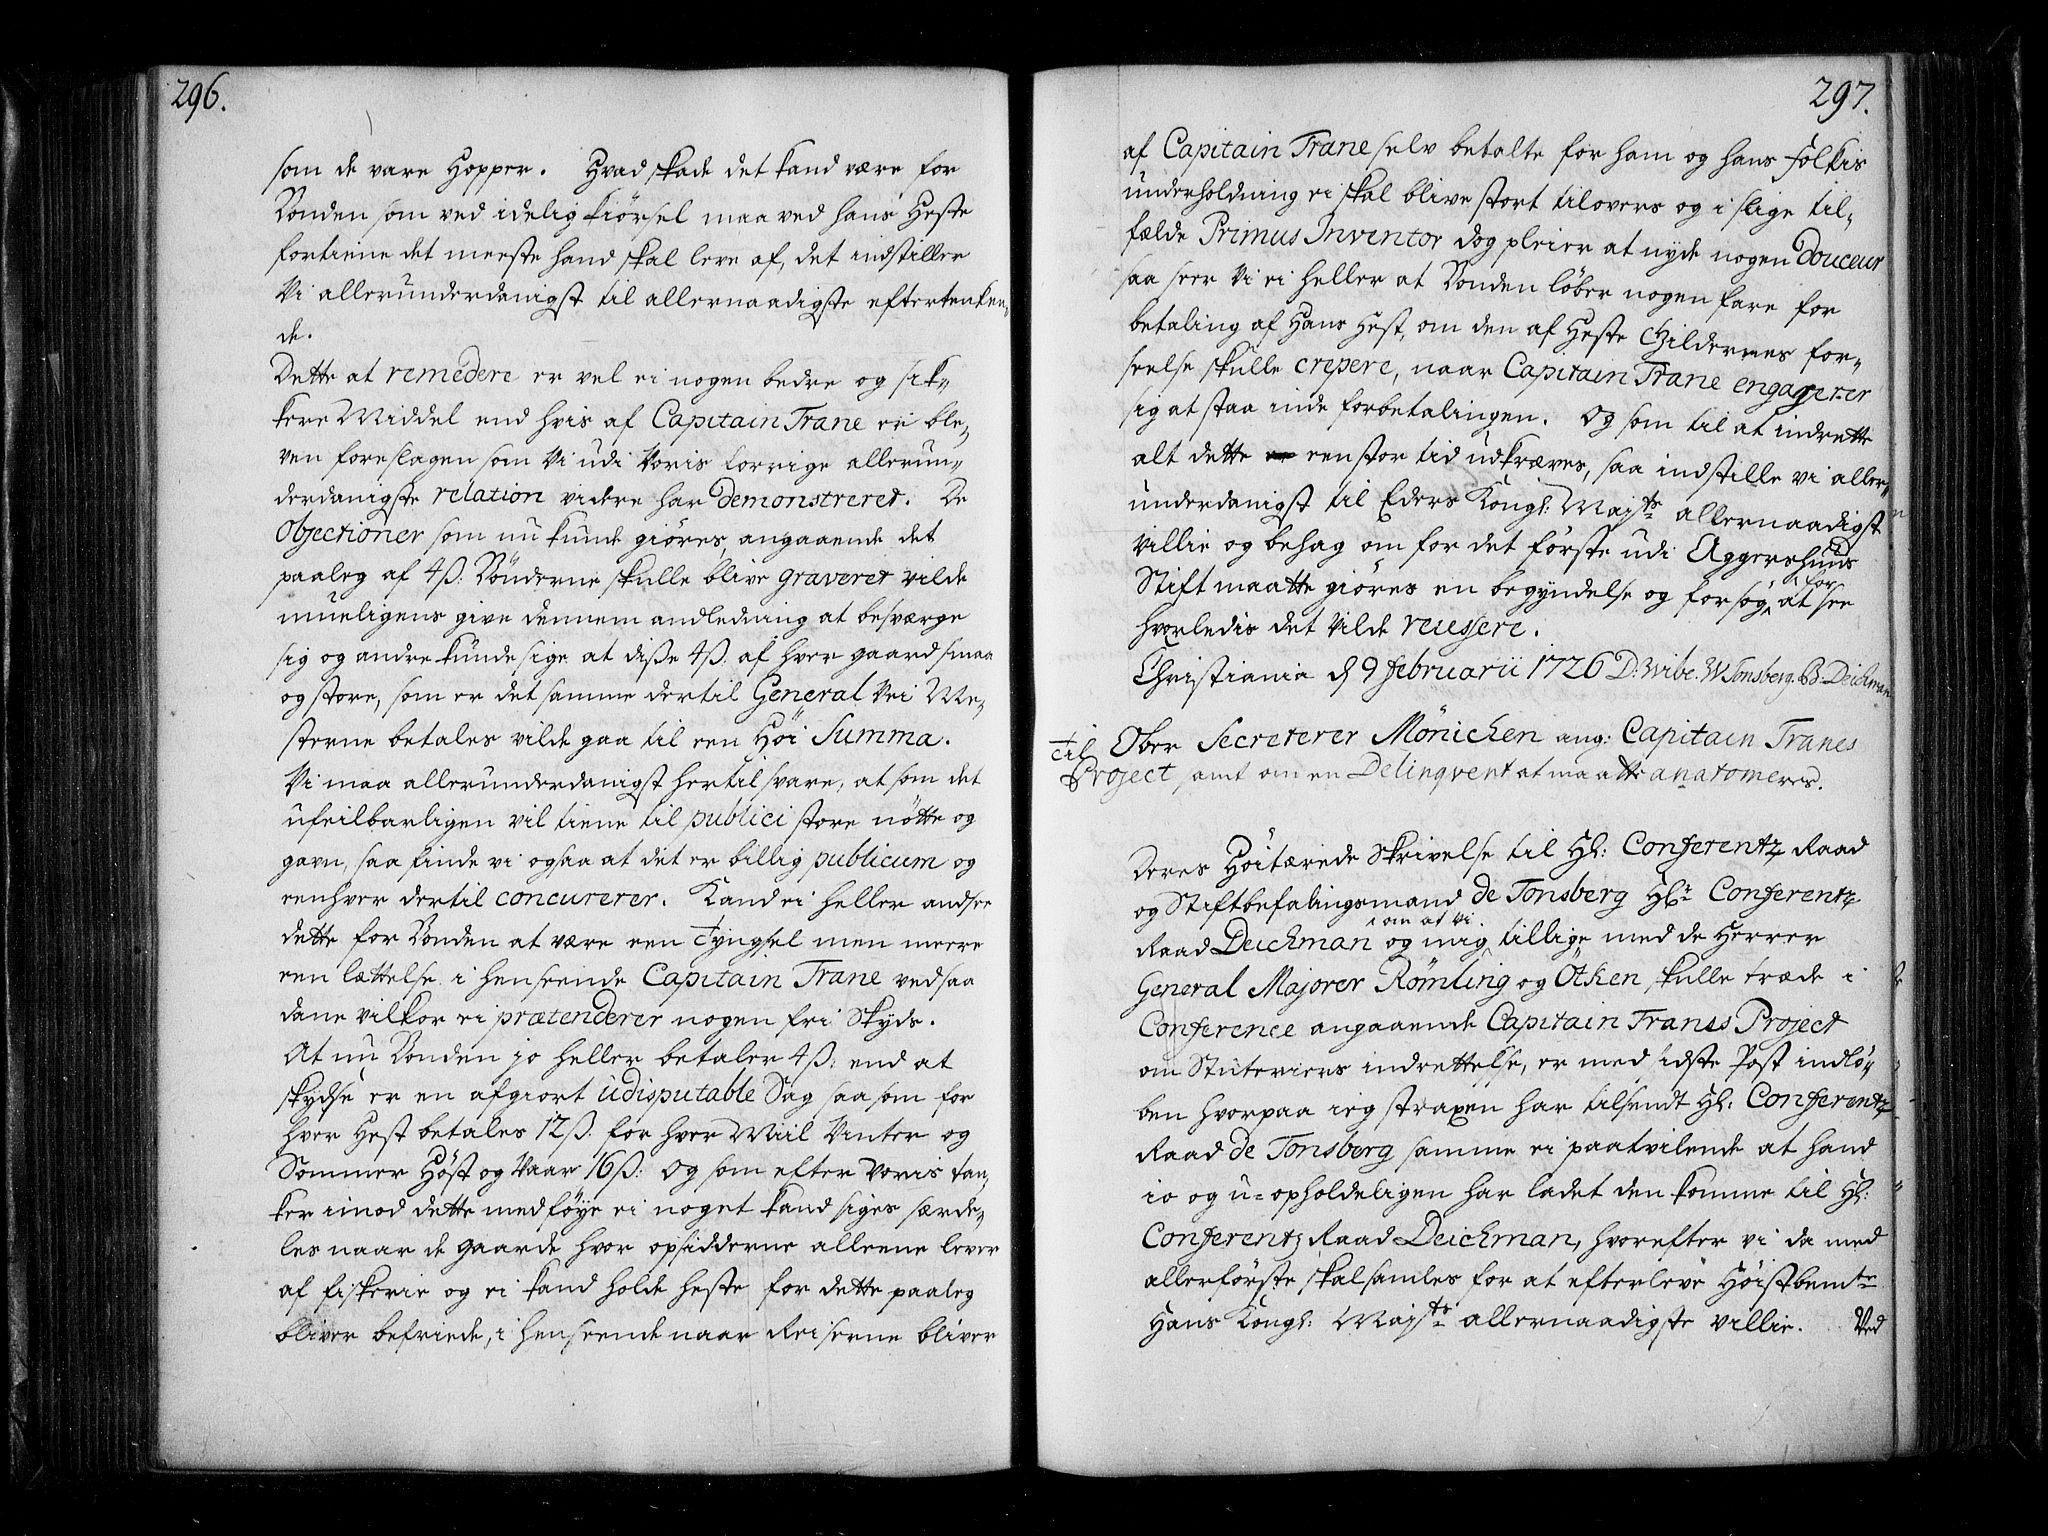 296.
som de vare Hopper. Hvad skade det kand være for
Bonden som ved idelig kiørsel maa ved hans Heste
fortiene det meeste hand skal leve af, det indstiller
Vi allerunderdanigst til allernaadigste eftertenken„
de.
Dette at remedere er vel ei nogen bedre og sik„
kere Middel end hvis af Capitain Trane er ble„
ven foreslagen som Vi udi Voris forrige allerun„
derdanigste relation videre har demonstreret. De
Objectioner som nu kunde giøres, angaaende det
paaleg af 4ß: Bönderne skulle blive graveret vilde
mueligens give dennem andledning at besværge
sig og andre kunde sige at diße 4ß. af hver gaard smaa
og store, som er det samme der til General Vei Me„
sterne betales vilde gaa til een Høi Summa.
Vi maa allerunderdanigst hertil svare, at som det
ufeilbarligen vil tiene til publici store nötte og
gavn, saa finde vi ogsaa at det er billig publicum og
eenhver dertil concurerer. Kand ei heller andsee
dette for Bonden at være een Tyngsel men meere
een lættelse i henseende Capitain Trane ved saa
dane vilkor ei prætenderer nogen fri Skyds.
At nu Bonden jo heller betaler 4ß: end at
skydse er en afgiort udisputable Sag saa som for
hver Hest betales 12ß. for hver Miil Vinter og
Sommer Høst og Vaar 16ß: og som efter Voris tan„
ker imod dette med föye ei noget kand siges særde„
les naar de gaarde hvor opsidderne alleene lever
af fiskerie og ei kand holde heste for dette paaleg
bliver befriede, i henseende naar Reiserne bliver
297.
af Capitain Trane selv betalte for ham og hans folkis
underholdning ei skal blive stort tilovers og i slige til„
fælde Primus Inventor dog pleier at nyde nogen Douceur
saa seer Vi ei heller at Bonden löber nogen fare for
betaling af Hans Hest, om den af Heste Gildernes for„
seelse skulle crepere, naar Capitain Trane engagerer
sig at staa inde for betalingen. Og som til at indrette
alt dette een stor tid udkræves, saa indstille vi aller„
underdanigst til Eders Kongl: Majts allernaadigst
Villie og behag om for det förste udi Aggershuus
Stift maatte giöres en begyndelse og forsøg for at see
hvorledis det vilde reussere.
Christiania d 9 februarii 1726 D: Wibe. W Tonsberg. B: Deichman
Til Ober Secreterer Mönichen ang: Capitain Tranes
Project samt om en Delinqvent at maatte anatomeres.
Deres Høitærede Skrivelse til Hl: Conferentz Raad
og Stiftbefalingsmand de Tonsberg Hr: Conferentz
Raad Deichman og mig om at vi tillige med de Herrer
General Majorer Römling og Ötken skulle træde i
Conference angaaende Capitain Tranes Project
om Stuteriers indrettelse, er med sidste Post indlö„
ben hvorpaa ieg straxen har tilsendt Hl: Conferentz
Raad de Tonsberg samme ei paatvilende at hand
io og u-opholdeligen har ladet den komme til Hl:
Conferentz Raad Deichman, hvorefter vi da med
allerförste skal samles for at efterleve Høistbemte
Hans Kongl: Majts allernaadigste villie. Ved